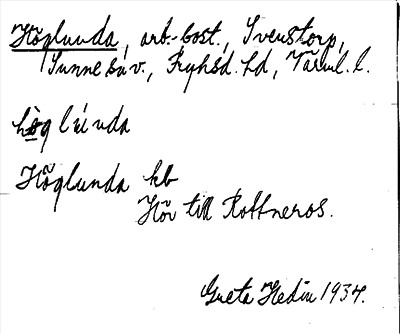 Höglunda, arb.-bost., Svenstorp,
Sunne sn v., Fryksd. hd, Värml. l.
hö̀glúnda
Höglunda kb
Hör till Rottneros.
Greta Hedin 1934.